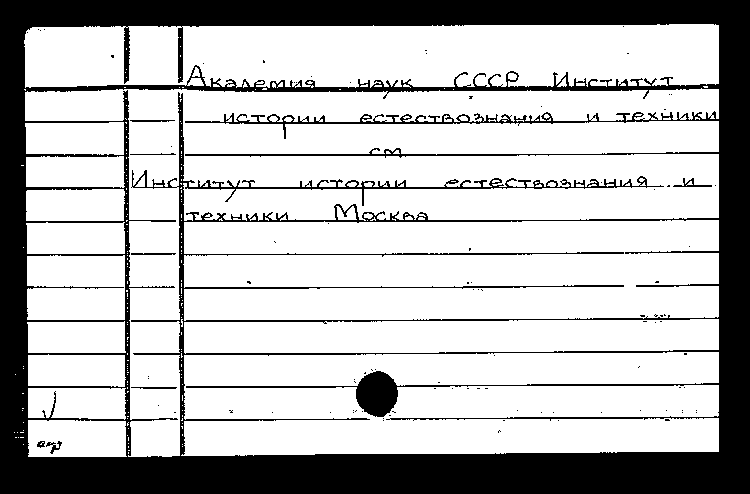 Академия наук СССР Институт
истории естествознания и техники
см
Институт истории естествознания и
техники Москва